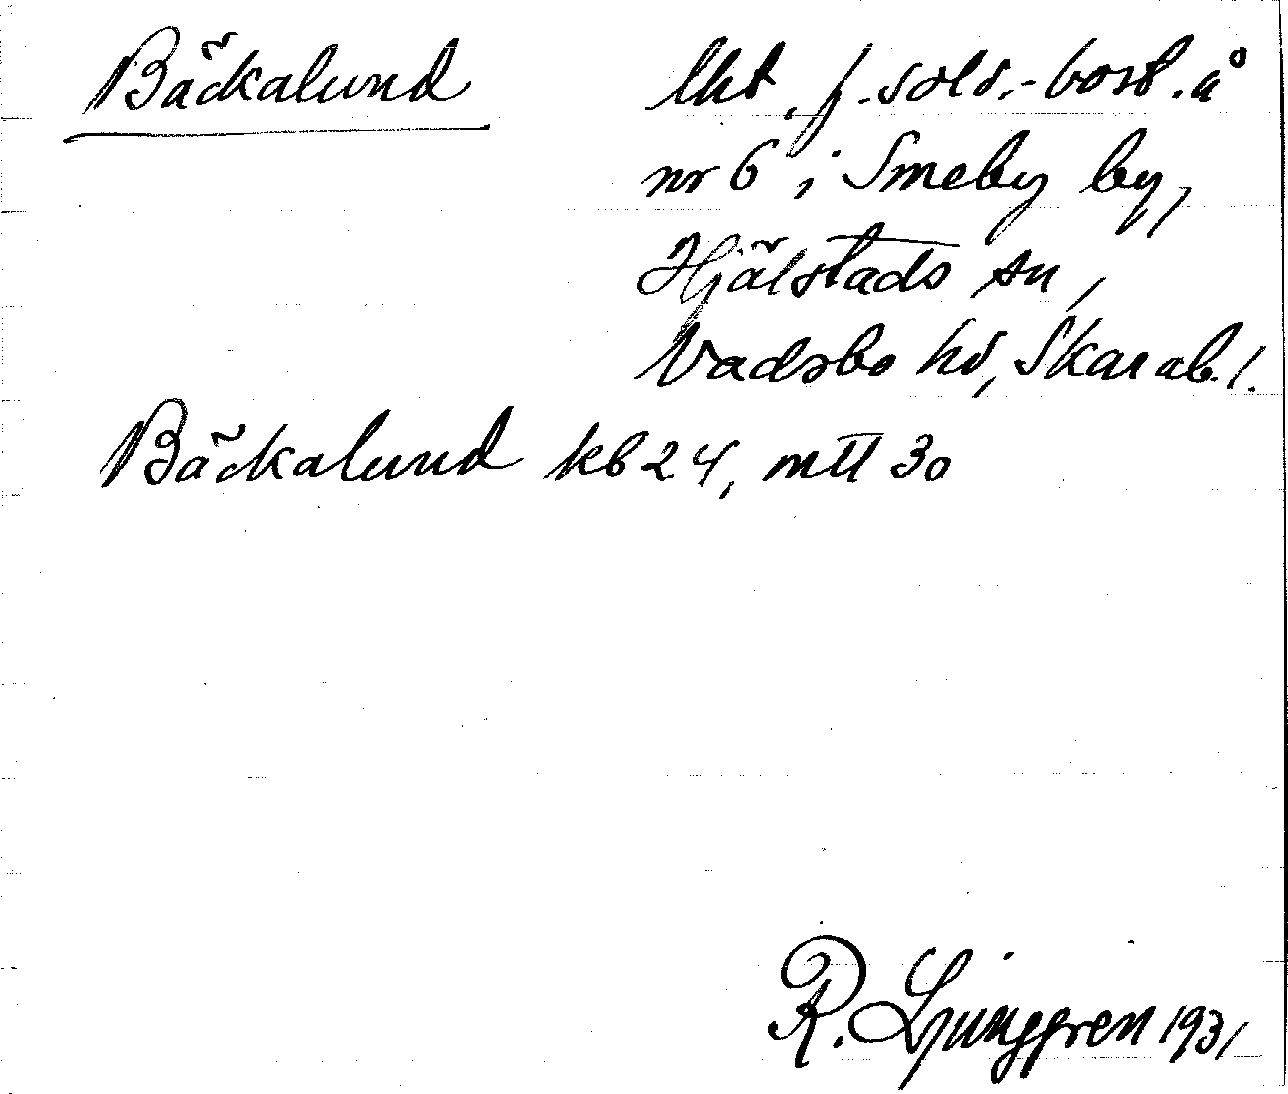 Bäckalund lht. f. sold.-bost. å
nr 6 i Smeby by,
Hjälstads sn,
Vadsbo hd, Skarab. l.
Bäckalund kb 24, mtl 30
R. Ljunggren 1931